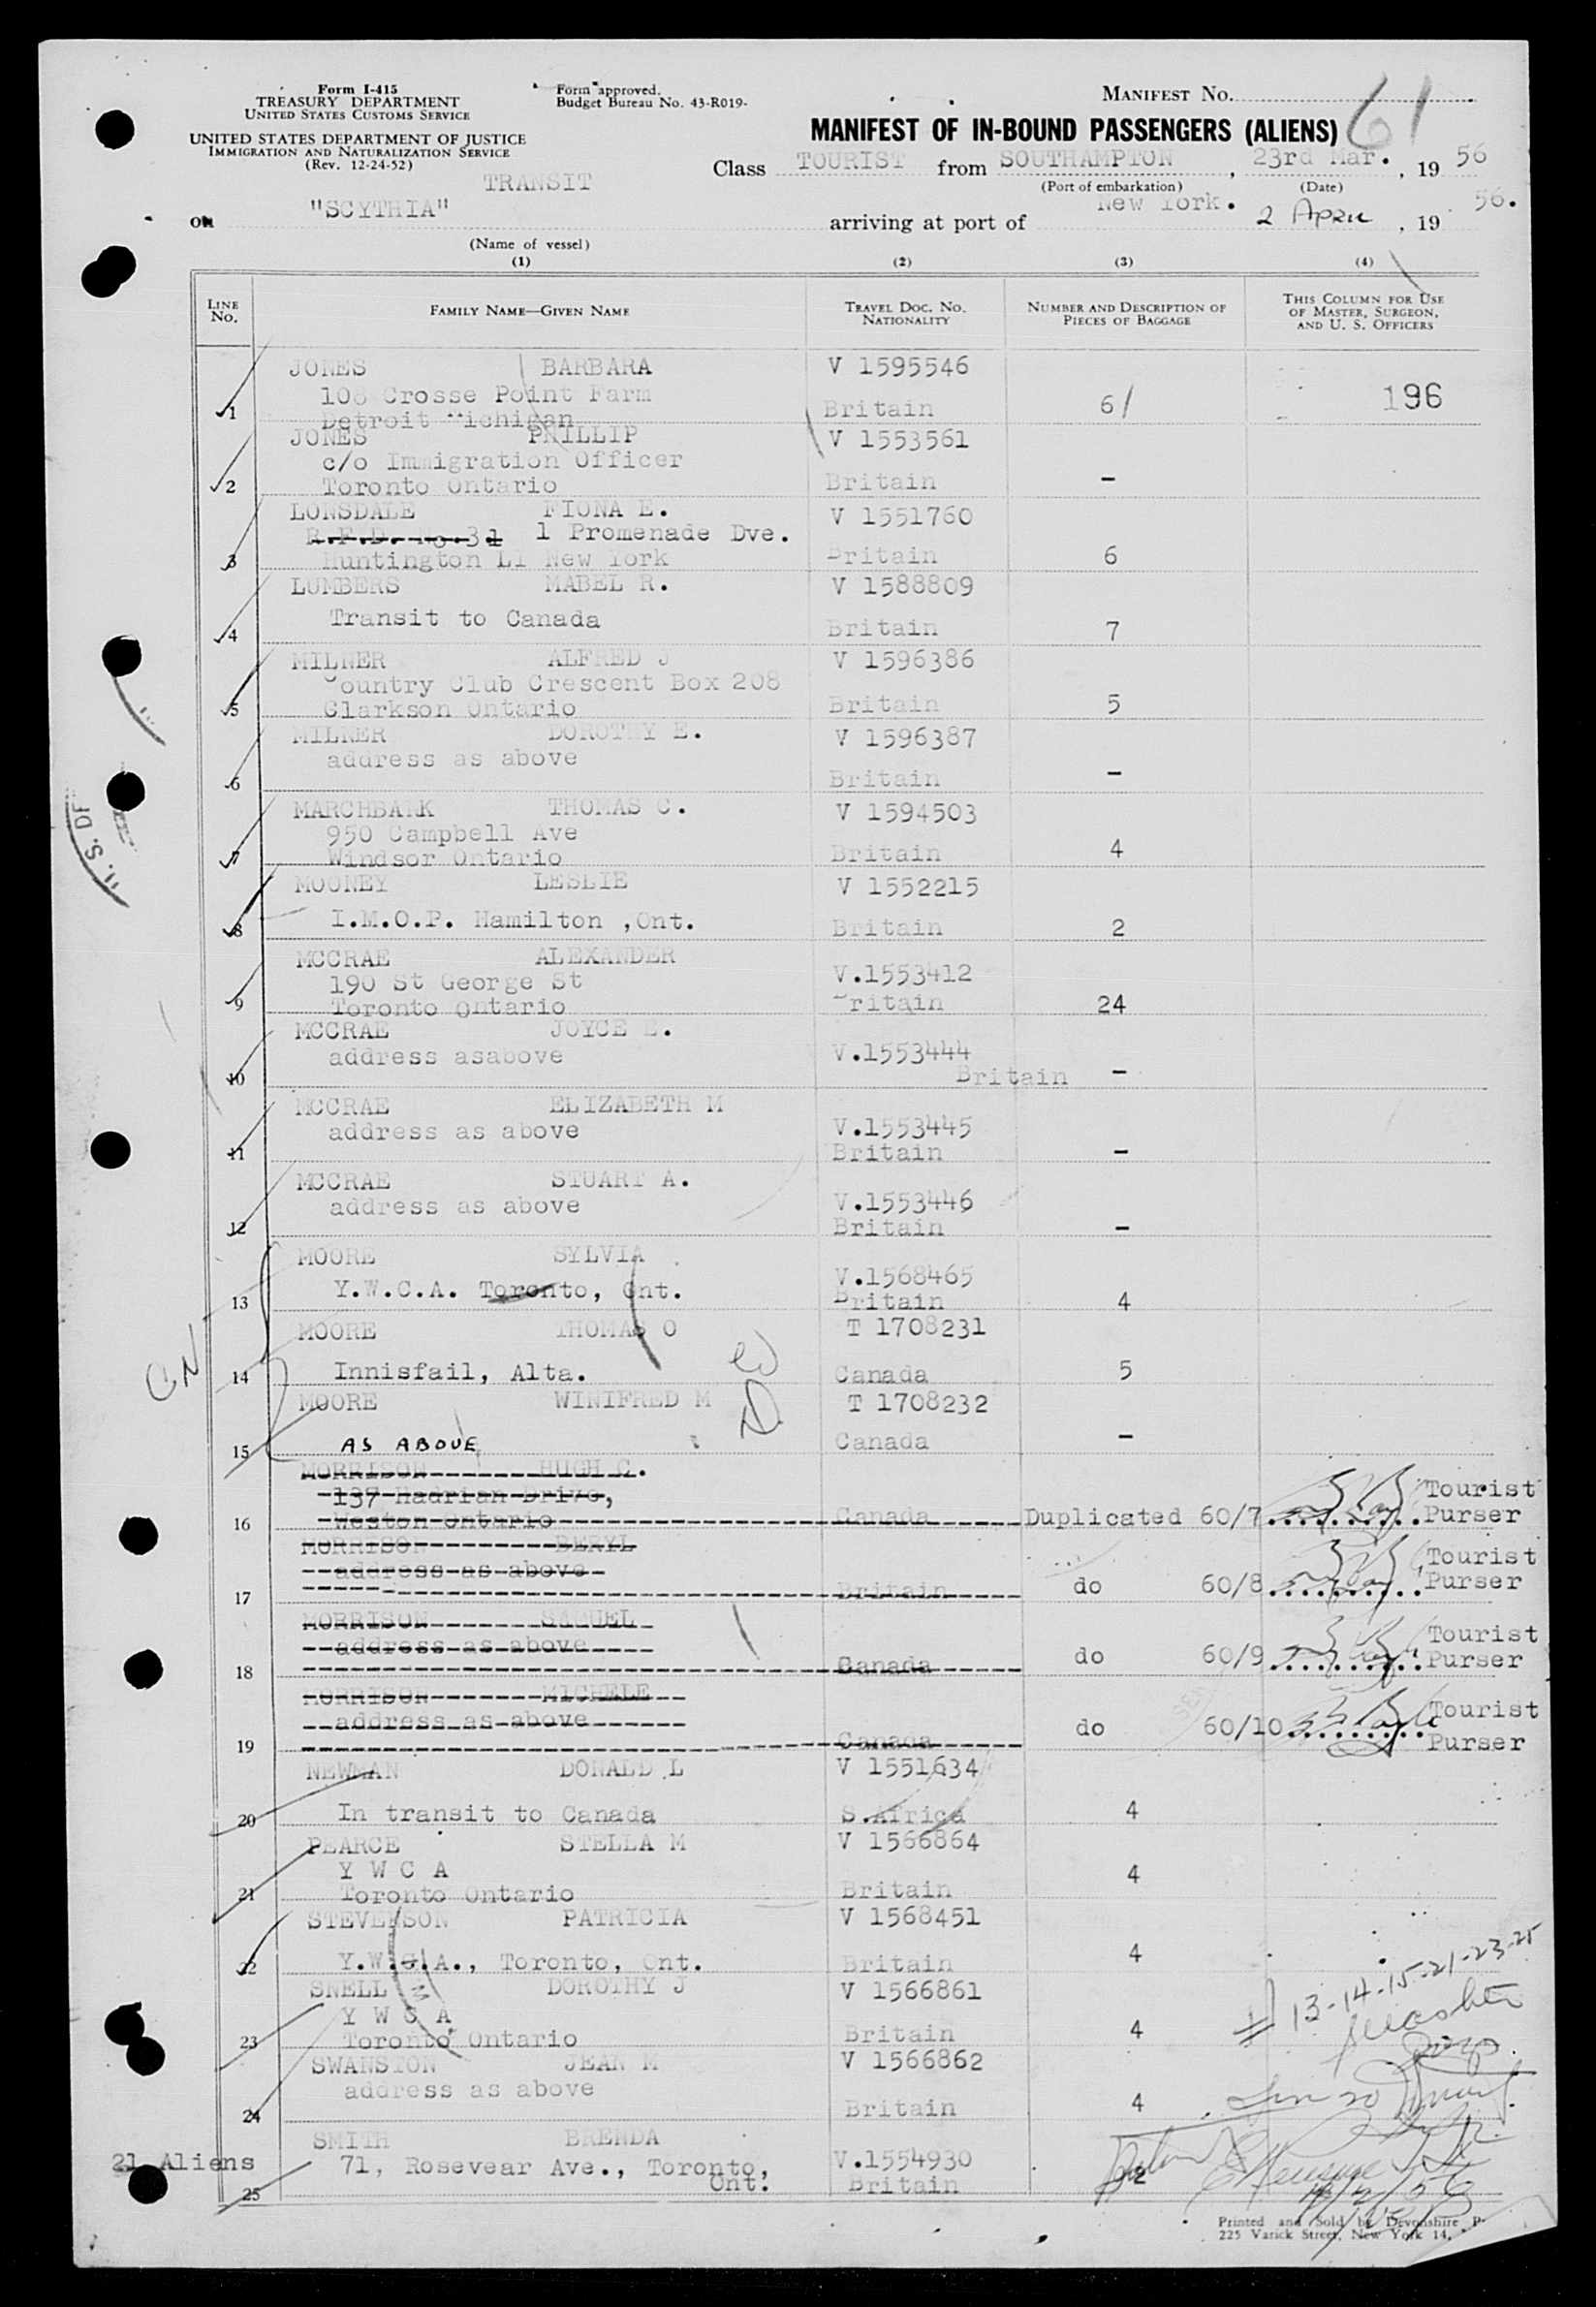 Form I-415
TREASURY DEPARTMENT
UNITED STATES CUSTOMS SERVICE
UNITED STATES DEPARTMENT OF JUSTICE
IMMIGRATION AND NATURALIZATION SERVICE
(Rev. 12-24-52)
Form approved.
Budget Bureau No. 43-R019-
MANIFEST NO. 61
MANIFEST OF IN-BOUND PASSENGERS (ALIENS)
Class TOURIST from SOUTHAMPTON, 23rd Mar., 19 56
(Port of embarkation) (Date)
TRANSIT
on "SCYTHIA" arriving at port of New York. 2 APRIL, 19 56.
(Name of vessel)
(1) (2) (3) (4)
LINE No. FAMILY NAME—GIVEN NAME TRAVEL DOC. NO. NATIONALITY NUMBER AND DESCRIPTION OF PIECES OF BAGGAGE THIS COLUMN FOR USE OF MASTER, SURGEON, AND U. S. OFFICERS
JONES BARBARA V 1595546
108 Crosse Point Farm
1 Detroit Michigan Britain 6/ 196
JONES PHILLIP V 1553561
c/o Immigration Officer
2 Toronto Ontario Britain –
LONSDALE FIONA E. V 1551760
R.F.D. No.31 1 Promenade Dve.
3 Huntington LI New York Britain 6
LUMBERS MABEL R. V 1588809
4 Transit to Canada Britain 7
MILNER ALFRED J V 1596386
Country Club Crescent Box 208
5 Clarkson Ontario Britain 5
MILNER DOROTHY E. V 1596387
address as above
6 Britain –
MARCHBANK THOMAS C. V 1594503
950 Campbell Ave
7 Windsor Ontario Britain 4
MOONEY LESLIE V 1552215
8 I.M.O.P. Hamilton ,Ont. Britain 2
MCCRAE ALEXANDER V.1553412
190 St George St
9 Toronto Ontario Britain 24
MCCRAE JOYCE E. V.1553444
address asabove
10 Britain –
MCCRAE ELIZABETH M V.1553445
address as above
11 Britain –
MCCRAE STUART A. V.1553446
address as above
12 Britain –
MOORE SYLVIA V.1568465
13 Y.W.C.A. Toronto, Ont. Britain 4
MOORE THOMAS O T 1708231
CN
14 Innisfail, Alta. Canada 5
MOORE WINIFRED M T 1708232
15 AS ABOVE Canada –
MORRISON HUGH C.
137 Hadrian Drive,
16 Weston Ontario Canada Duplicated 60/7 Tourist Purser
MORRISON BERYL
address as above
17 Britain do 60/8 Tourist Purser
MORRISON SAMUEL
address as above
18 Canada do 60/9 Tourist Purser
MORRISON MICHELE
address as above
19 Canada do 60/10 Tourist Purser
NEWMAN DONALD L V 1551634
20 In transit to Canada S.Africa 4
PEARCE STELLA M V 1566864
Y W C A
21 Toronto Ontario Britain 4
STEVENSON PATRICIA V 1568451
22 Y.W.C.A., Toronto, Ont. Britain 4
SNELL DOROTHY J V 1566861
Y W C A
23 Toronto Ontario Britain 4
13-14-15-21-23-25
SWANSTON JEAN M V 1566862
address as above
24 Britain 4
SMITH BRENDA V.1554930
21 Aliens
71, Rosevear Ave., Toronto, Ont.
25 Britain 2
Printed and Sold by Devonshire
225 Varick Street, New York 14,